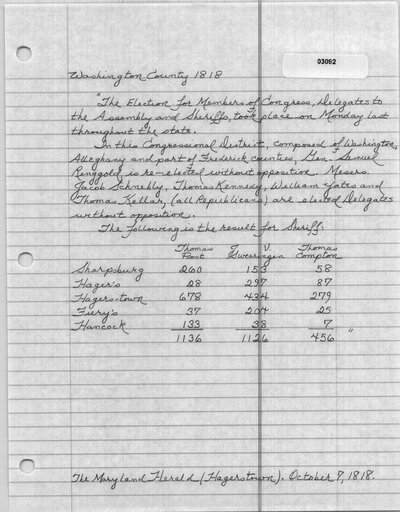 03092
Washington County 1818
"The Election for Members of Congress, Delegates to
the Assembly and Sheriffs, took place on Monday last
throughout the state.
In this Congressional District, composed of Washington,
Alleghany and part of Frederick counties, Gen. Samuel
Ringgold is re-elected without opposition. Messrs.
Jacob Schnebly, Thomas Kennedy, William Yates and
Thomas Kellar, (all Republicans) are elected Delegates
without opposition.
The following is the result for Sheriff:
Thomas Post V. Swearingen Thomas Compton
Sharpsburg 260 153 58
Hager's 28 297 87
Hagers-town 678 434 279
Fiery's 37 204 25
Hancock 133 38 7
1136 1126 456 "
The Maryland Herald (Hagerstown). October 7, 1818.